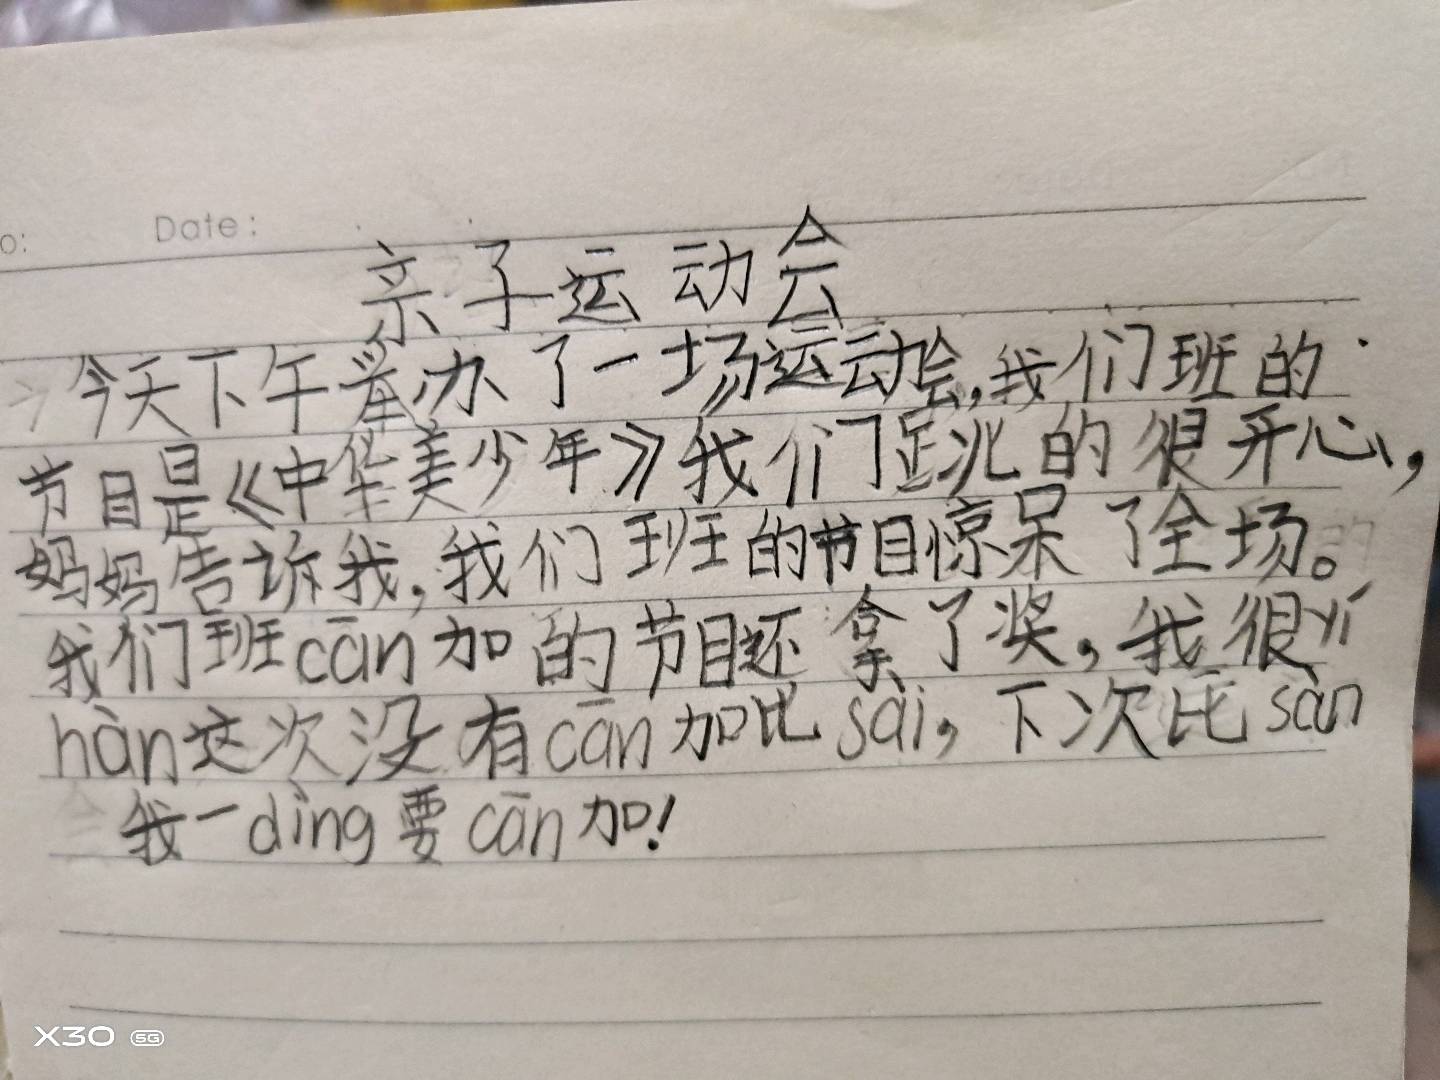 o:
Date:
亲子运动会
今天下午举办了一场运动会,我们班的
节目是《中华美少年》我们跳的很开心,
妈妈告诉我,我们班的节目惊呆了全场。
我们班cān加的节目还拿了奖,我很yí
hàn这次没有cān加比sài,下次比sàn
我一dìng要cān加!
X30 5G